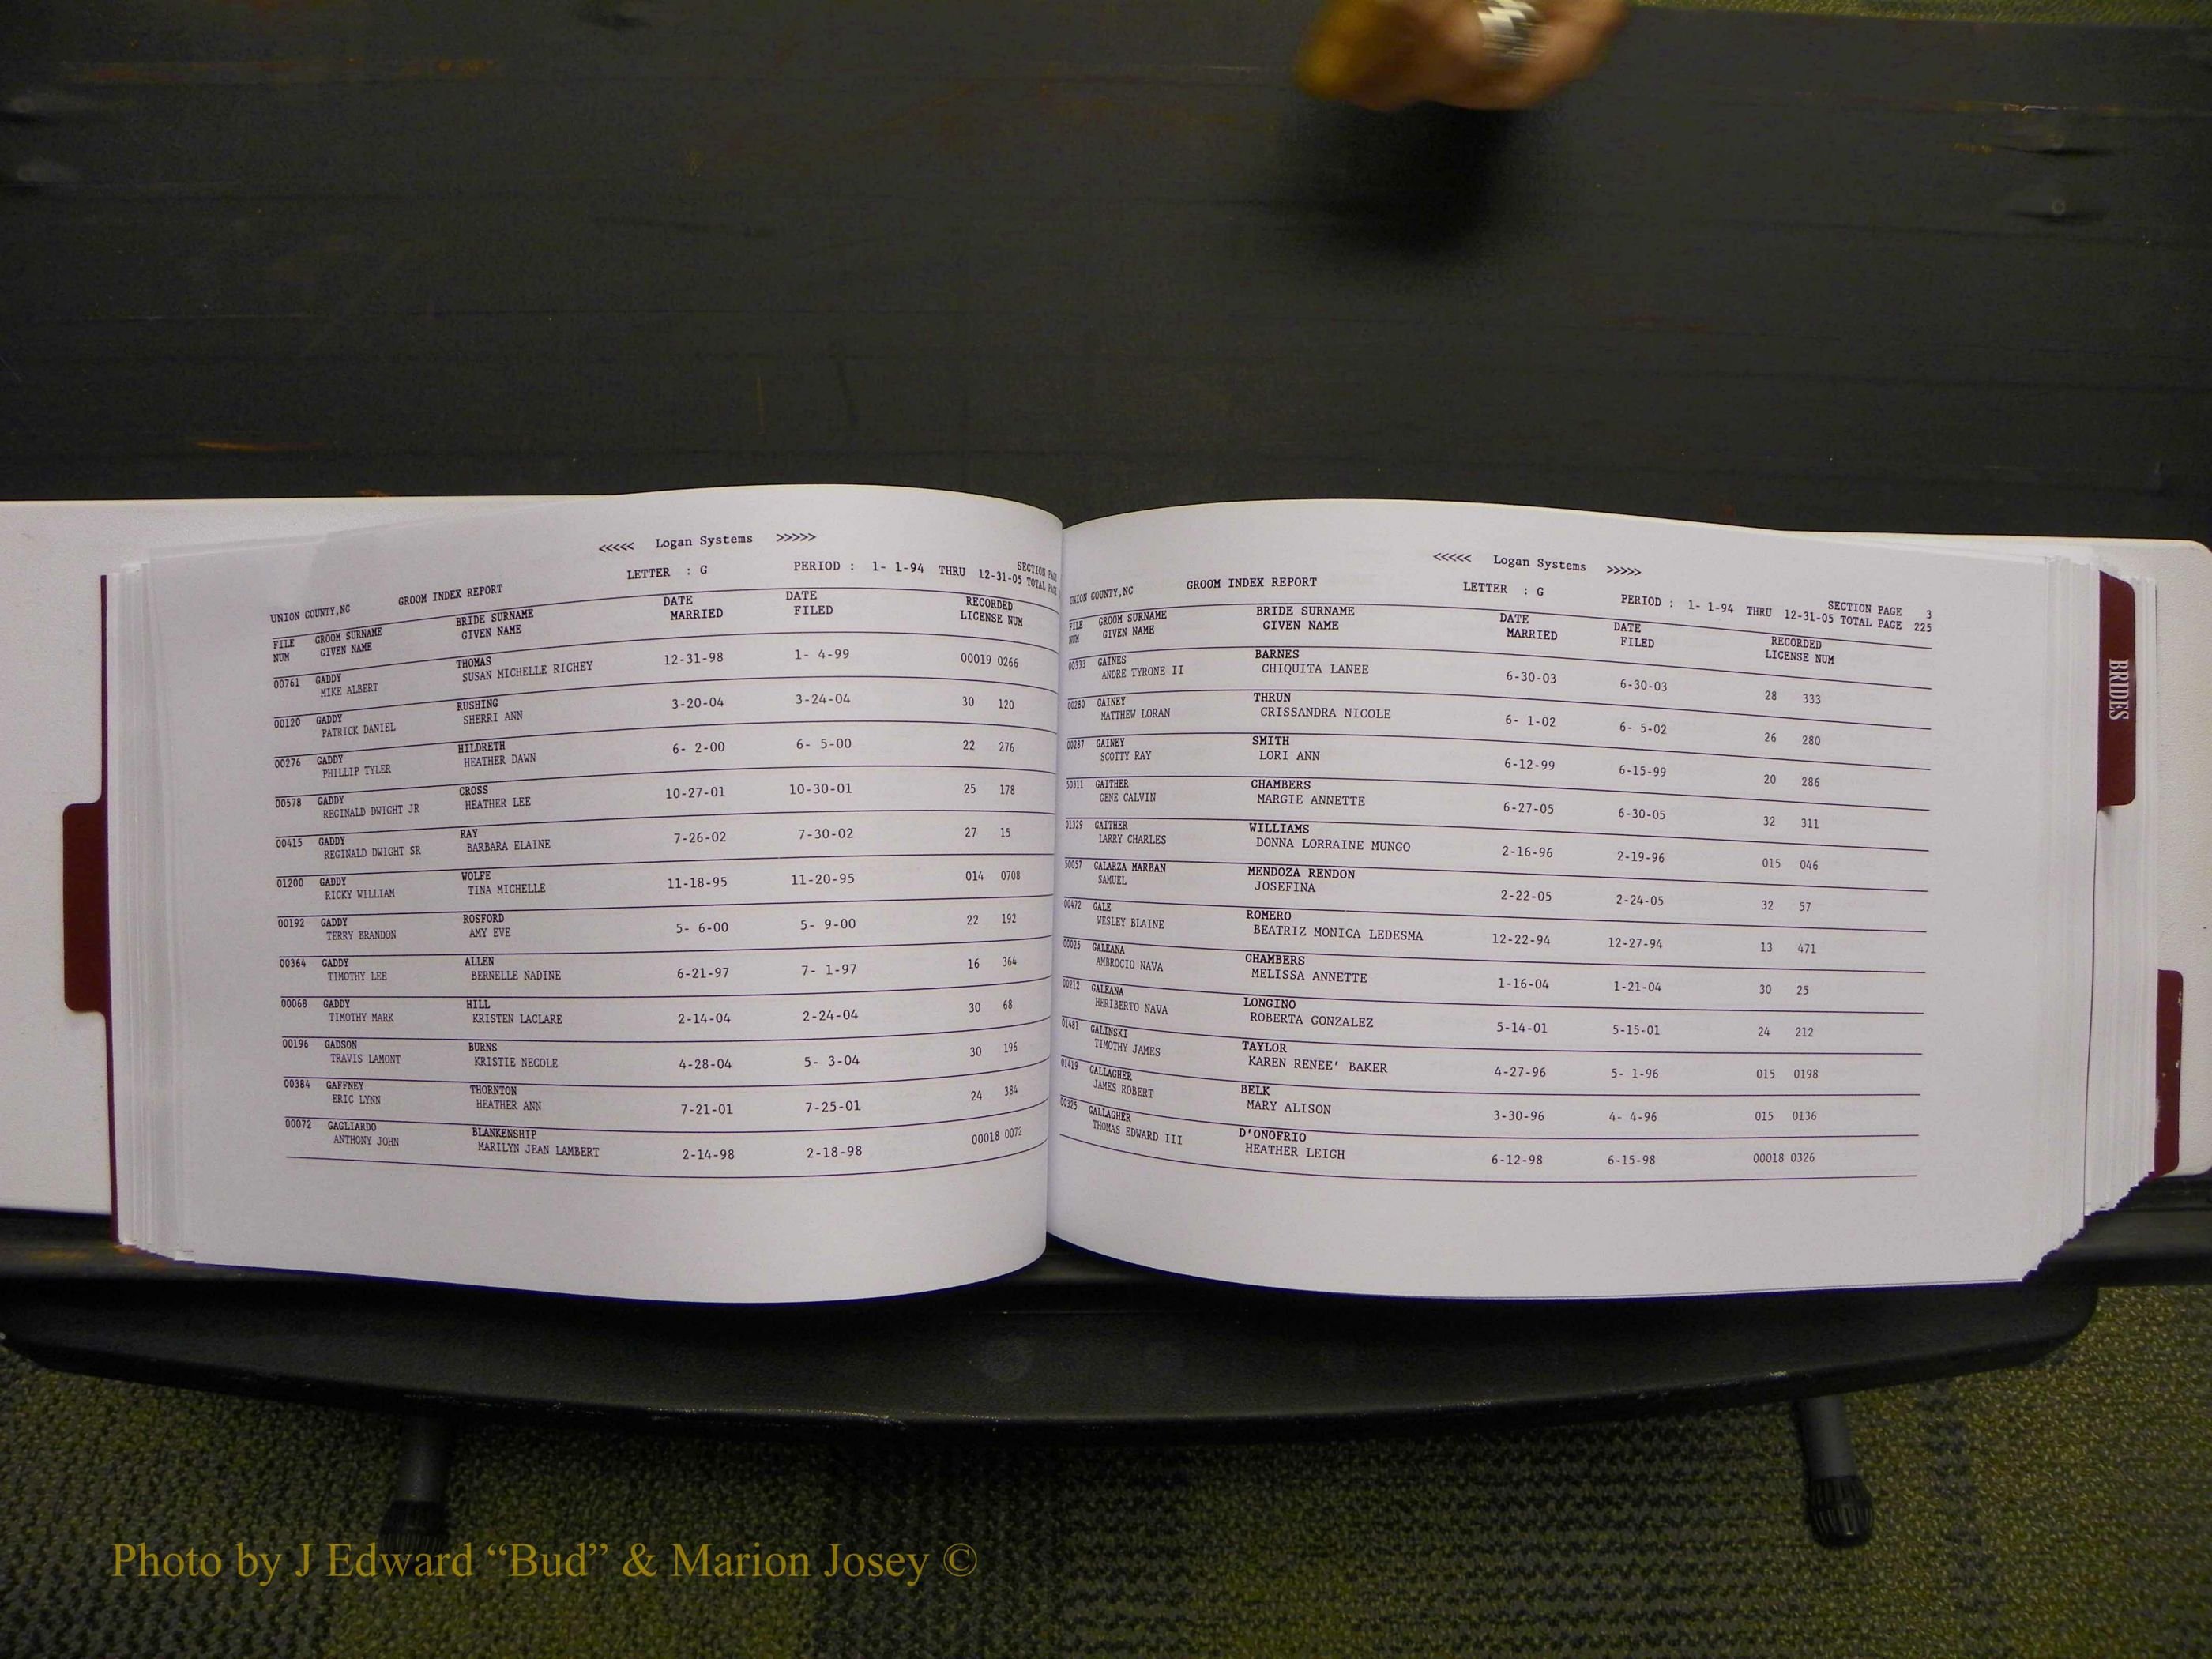 <<<<< Logan Systems >>>>>
UNION COUNTY,NC GROOM INDEX REPORT LETTER : G PERIOD : 1- 1-94 THRU 12-31-05 SECTION PAGE
TOTAL PAGE
FILE GROOM SURNAME BRIDE SURNAME DATE DATE RECORDED
NUM GIVEN NAME GIVEN NAME MARRIED FILED LICENSE NUM
00761 GADDY THOMAS 12-31-98 1- 4-99 00019 0266
MIKE ALBERT SUSAN MICHELLE RICHEY
00120 GADDY RUSHING 3-20-04 3-24-04 30 120
PATRICK DANIEL SHERRI ANN
00276 GADDY HILDRETH 6- 2-00 6- 5-00 22 276
PHILLIP TYLER HEATHER DAWN
00578 GADDY CROSS 10-27-01 10-30-01 25 178
REGINALD DWIGHT JR HEATHER LEE
00415 GADDY RAY 7-26-02 7-30-02 27 15
REGINALD DWIGHT SR BARBARA ELAINE
01200 GADDY WOLFE 11-18-95 11-20-95 014 0708
RICKY WILLIAM TINA MICHELLE
00192 GADDY ROSFORD 5- 6-00 5- 9-00 22 192
TERRY BRANDON AMY EVE
00364 GADDY ALLEN 6-21-97 7- 1-97 16 364
TIMOTHY LEE BERNELLE NADINE
00068 GADDY HILL 2-14-04 2-24-04 30 68
TIMOTHY MARK KRISTEN LACLARE
00196 GADSON BURNS 4-28-04 5- 3-04 30 196
TRAVIS LAMONT KRISTIE NECOLE
00384 GAFFNEY THORNTON 7-21-01 7-25-01 24 384
ERIC LYNN HEATHER ANN
00072 GAGLIARDO BLANKENSHIP 2-14-98 2-18-98 00018 0072
ANTHONY JOHN MARILYN JEAN LAMBERT
<<<<< Logan Systems >>>>>
UNION COUNTY,NC GROOM INDEX REPORT LETTER : G PERIOD : 1- 1-94 THRU 12-31-05 SECTION PAGE 3
TOTAL PAGE 225
FILE GROOM SURNAME BRIDE SURNAME DATE DATE RECORDED
NUM GIVEN NAME GIVEN NAME MARRIED FILED LICENSE NUM
00333 GAINES BARNES 6-30-03 6-30-03 28 333
ANDRE TYRONE II CHIQUITA LANEE
00280 GAINEY THRUN 6- 1-02 6- 5-02 26 280
MATTHEW LORAN CRISSANDRA NICOLE
00287 GAINEY SMITH 6-12-99 6-15-99 20 286
SCOTTY RAY LORI ANN
50311 GAITHER CHAMBERS 6-27-05 6-30-05 32 311
GENE CALVIN MARGIE ANNETTE
01329 GAITHER WILLIAMS 2-16-96 2-19-96 015 046
LARRY CHARLES DONNA LORRAINE MUNGO
50057 GALARZA MARBAN MENDOZA RENDON 2-22-05 2-24-05 32 57
SAMUEL JOSEFINA
00472 GALE ROMERO 12-22-94 12-27-94 13 471
WESLEY BLAINE BEATRIZ MONICA LEDESMA
00025 GALEANA CHAMBERS 1-16-04 1-21-04 30 25
AMBROCIO NAVA MELISSA ANNETTE
00212 GALEANA LONGINO 5-14-01 5-15-01 24 212
HERIBERTO NAVA ROBERTA GONZALEZ
01481 GALINSKI TAYLOR 4-27-96 5- 1-96 015 0198
TIMOTHY JAMES KAREN RENEE' BAKER
01419 GALLAGHER BELK 3-30-96 4- 4-96 015 0136
JAMES ROBERT MARY ALISON
00325 GALLAGHER D'ONOFRIO 6-12-98 6-15-98 00018 0326
THOMAS EDWARD III HEATHER LEIGH
BRIDES
Photo by J Edward “Bud” & Marion Josey ©